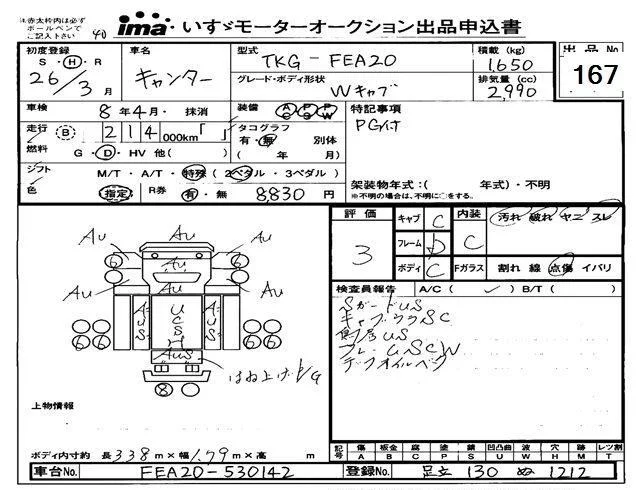 ※赤太枠内は必ず
ボールペンで
ご記入下さい
ima いすゞモーターオークション出品申込書
初度登録 車名 型式 TKG-FEA20 積載(kg) 1,650 出品No
S・H・R 26/3月 キャンター グレード・ボディ形状 Wキャブ 排気量(cc) 2,990 167
車検 8年4月・抹消 装備 AC PS PW 特記事項
走行 B 214000km「 」 タコグラフ 有・無 別体 PG付
燃料 G・D・HV 他( ) ( 年 月)
シフト M/T・A/T・特殊(2ペダル・3ペダル) 架装物年式:( 年式)・不明
色 指定 R券 有・無 8,830円 ※不明の場合は、不明に○をする。
評価 3 キャブ C 内装 C 汚れ 破れ ヤニ スレ
フレーム b
ボディ C Fガラス 割れ 線 点傷 イバリ
検査員報告 A/C( ✓ ) B/T( )
SガードUS
キャブウラSC
US
フレームSCW
Au Au Au
6 6
Au Au Au
AUS UCSH AUS
6 6 6 6
AUS
はね上げP/G
8
上物情報
ボディ内寸約 長338m×幅1.79m×高 m
記号 傷A 板金B 腐C 塗P 錆S 凹凸曲U 波W 穴H 跡M レツ割T
車台No. FEA20-530142 登録No. 足立 130 ぬ 1212